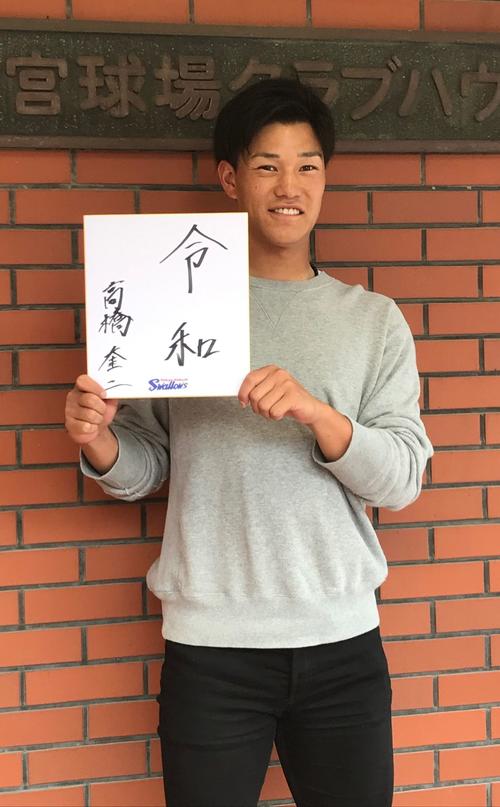 宮球場クラブハウ
令和
高橋奎二
Swallows